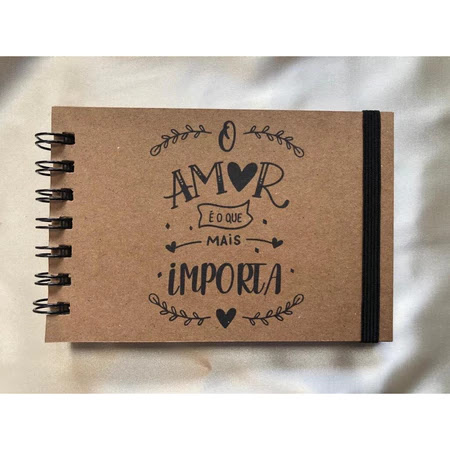 O
AMOR
É O QUE
MAiS
iMPORTA